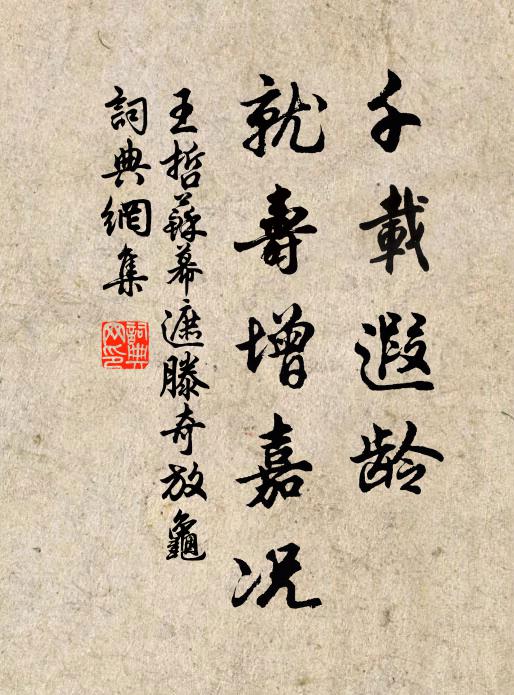 千載遐龄
就壽增嘉况
王哲蘇幕遮滕奇放龜
詞典網集
詞典網印